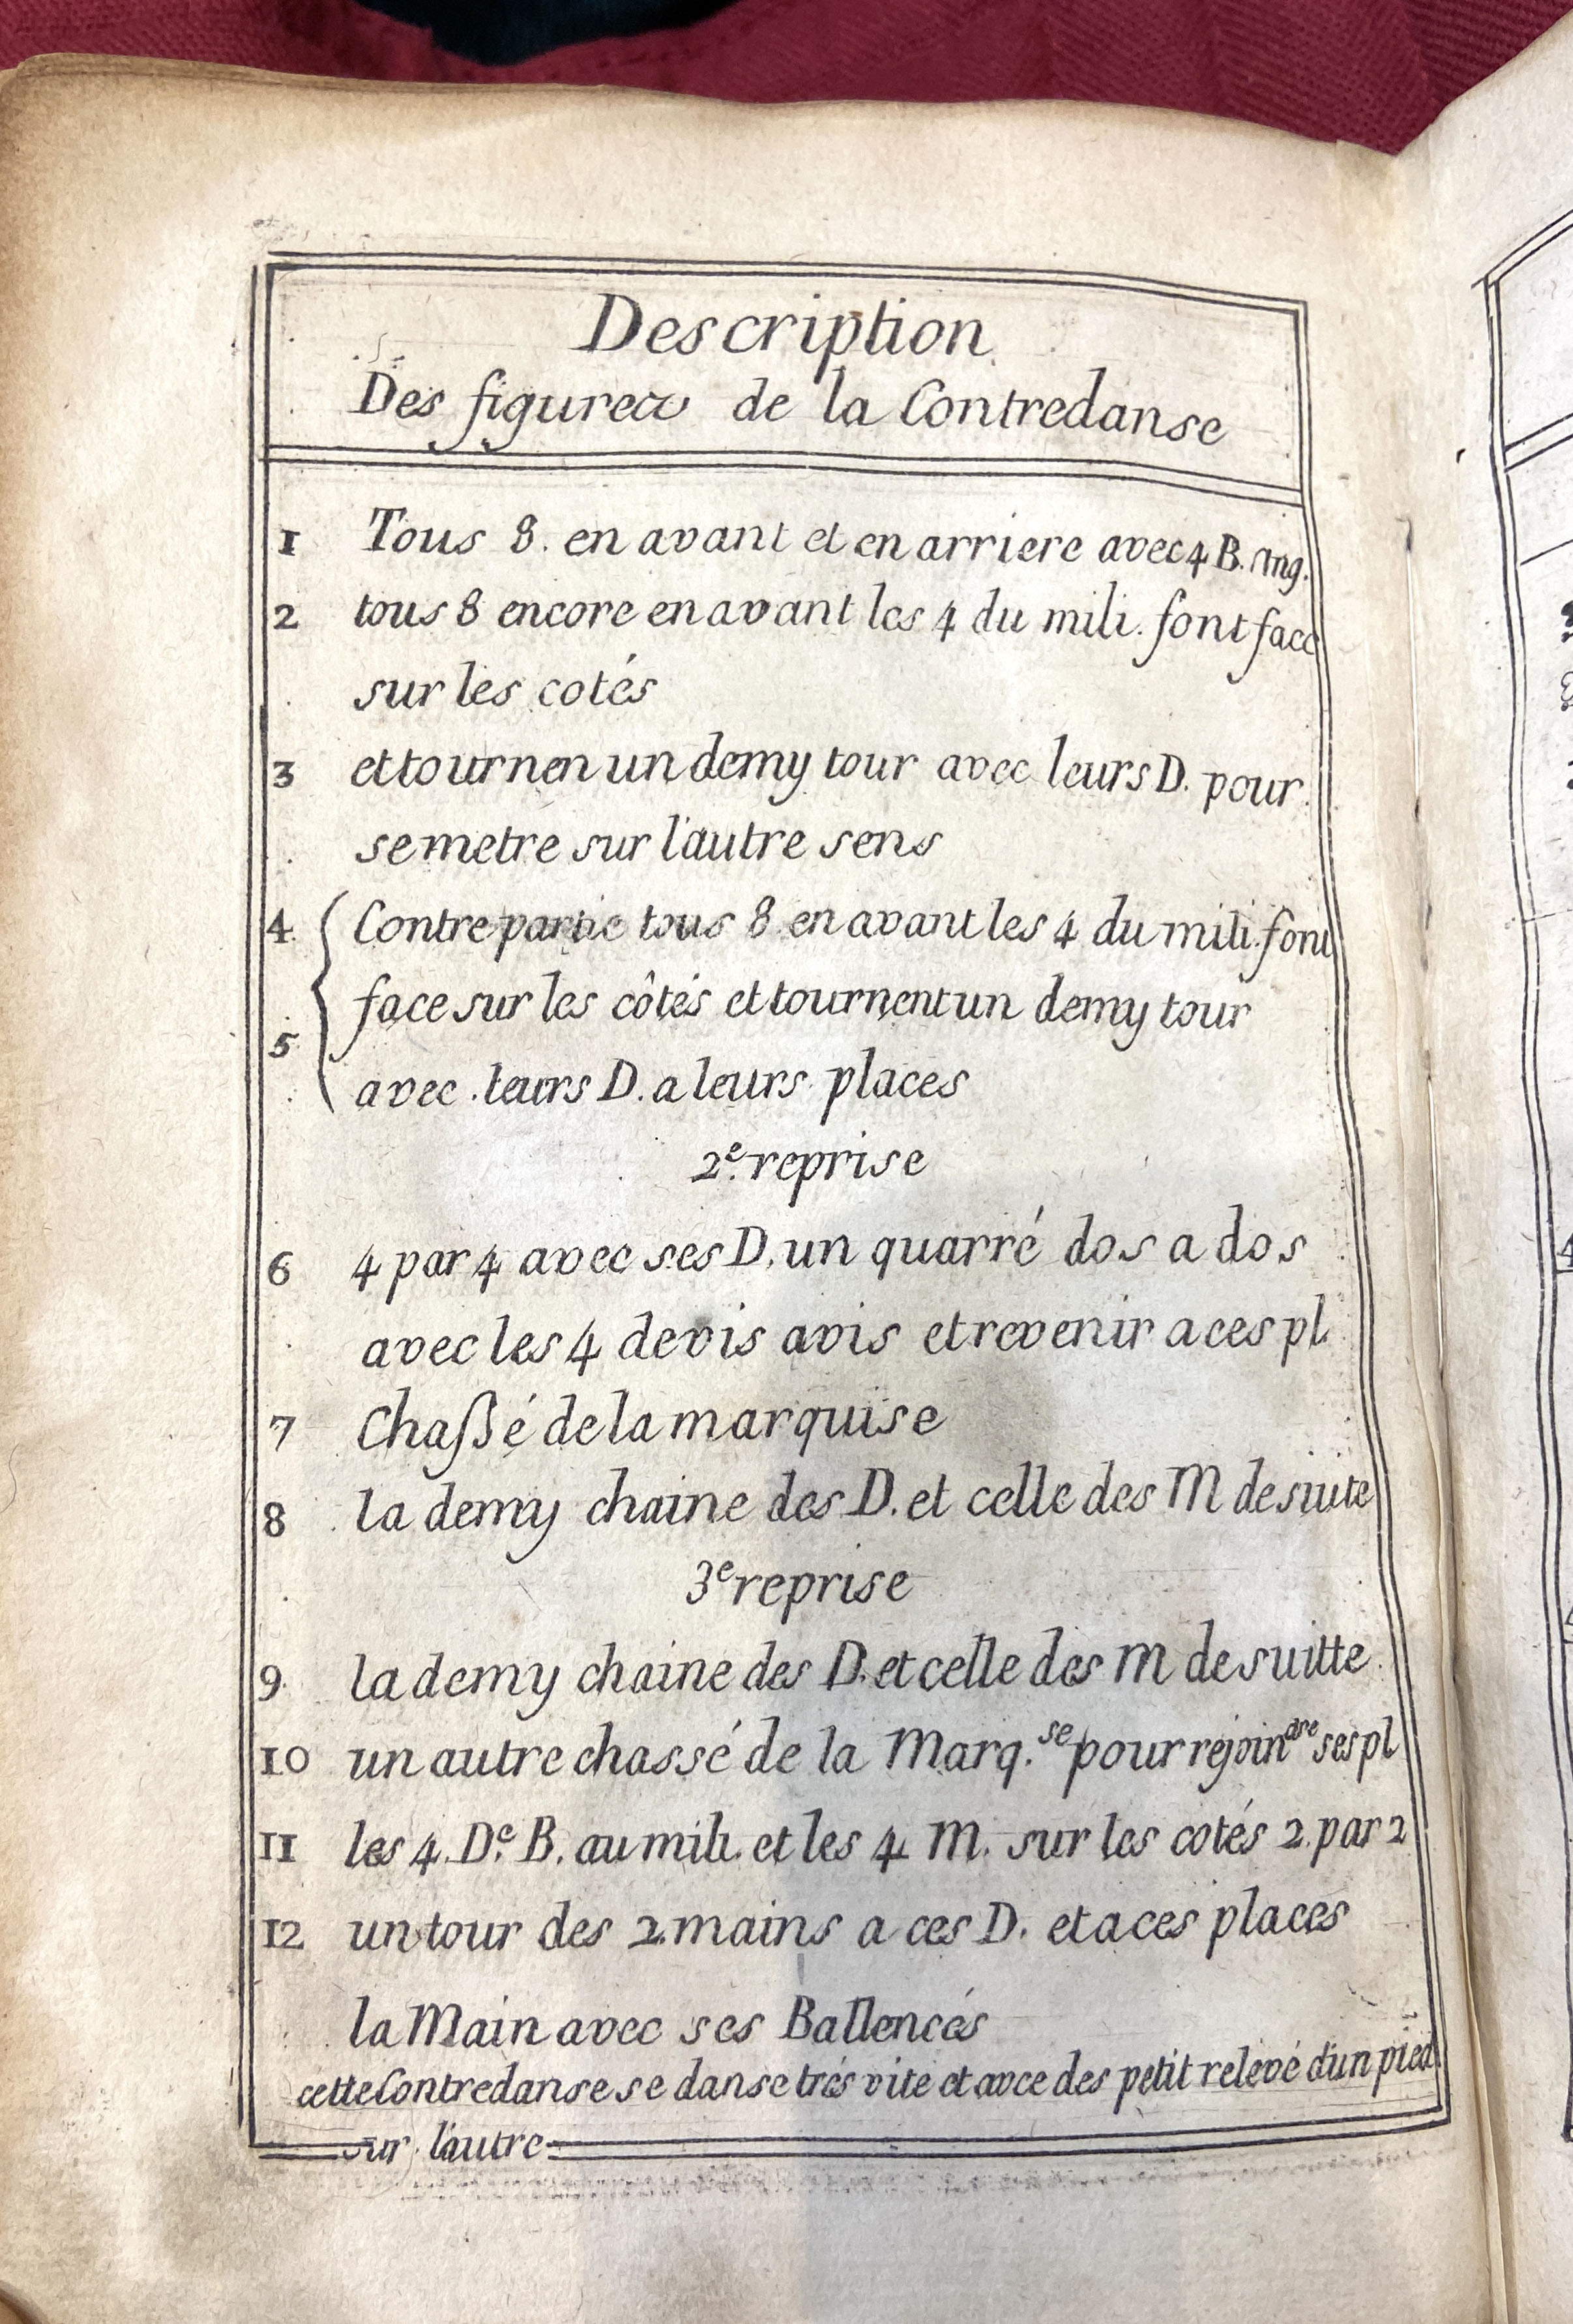 Description
Des figures de la Contredanse
1 Tous 8. en avant et en arriere avec 4 B.
2 tous 8 encore en avant les 4 du mili. font face
sur les cotés
3 et tournen un demy tour avec leurs D. pour
se metre sur l'autre sens
4 Contre partie tous 8 en avant les 4 du mili. font
face sur les côtés et tournent un demy tour
5
avec leurs D. a leurs places
2e. reprise
6 4 par 4 avec ses D. un quarré dos a dos
avec les 4 de vis a vis et revenir a ces pl.
7 Chassé de la marquise
8 la demy chaine des D. et celle des M de suite
3e reprise
9 la demy chaine des D. et celle des M de suitte
10 un autre chassé de la Marq.se pour rejoindre ses pl
11 les 4. De. B. au mili. et les 4 M. sur les cotés 2 par 2
12 un tour des 2 mains a ces D. et a ces places
la Main avec ses Ballencés
cette Contredanse se danse trés vite et avce des petit relevé d'un pied
sur l'autre